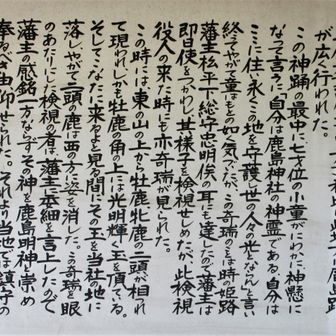 が広く行われた。
この神踊の最中に七才位の小童がにわかに神懸に
なって言うに、自分は鹿島神社の神霊である。自分は
こゝに住い永くこの地を守護し世の人々の光となんと言い
終てやがて童はもとの如く気がたが、この奇瑞のことは時の姫路
藩主松平下総守忠明侯の耳にも達したので藩主は
即日使をつかわし其様子を検視せしめたが、此検視
役人の来た時にも亦奇瑞が見られた。
この時には東の山の上から牡鹿牝鹿の二頭が相られ
て現われしかも牡鹿の角の上には光明輝く玉を頂いている。
そしてこなたに来るよと見る間にその玉を当社の地に
落しやがて二頭の鹿は西の方に姿を消した。この奇瑞を眼
のあたりにした検視の者は、藩主に委細を言上したので
藩主の感銘一方ならずその神を鹿島明神と崇め
奉るべき由仰せられた。それより当地では鎮守の